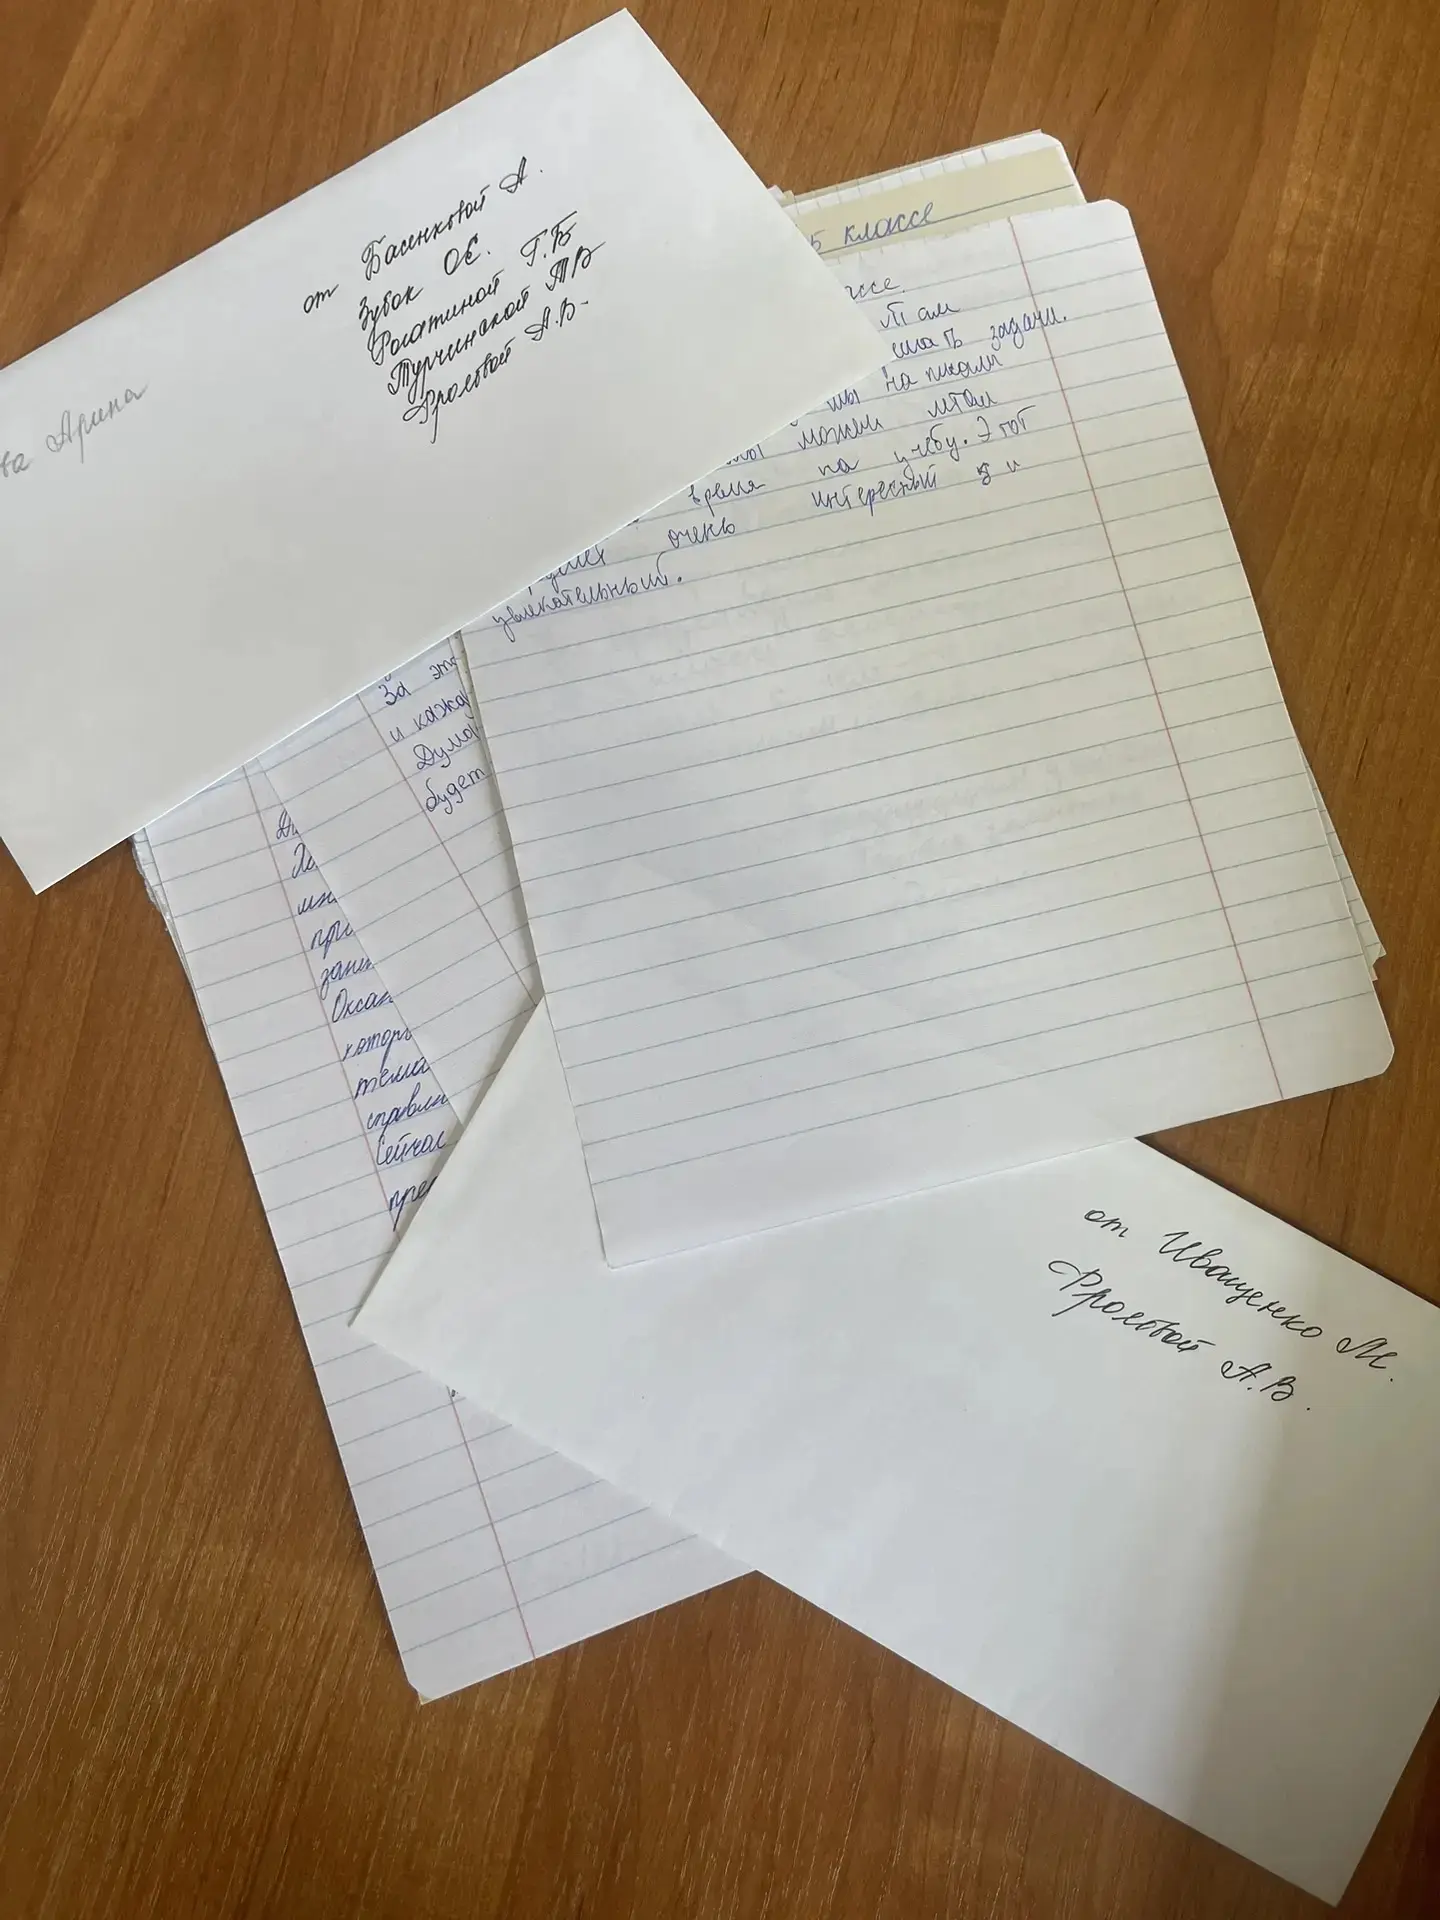 от Басенковой А.
Зубок О.Е.
Рогатиной Г.Б
Турчинской Т.В
Фроловой А.В.
та Арина
5 классе
ссе.
там
шать задачи.
мы на
можем
время на учёбу. Этот
очень интересный и
увлекательный.
За это
и кажд
Дума
будет
зани
Оксан
котор
тема
справл
Сейчас
пре
от Иващенко М.
Фроловой А.В.